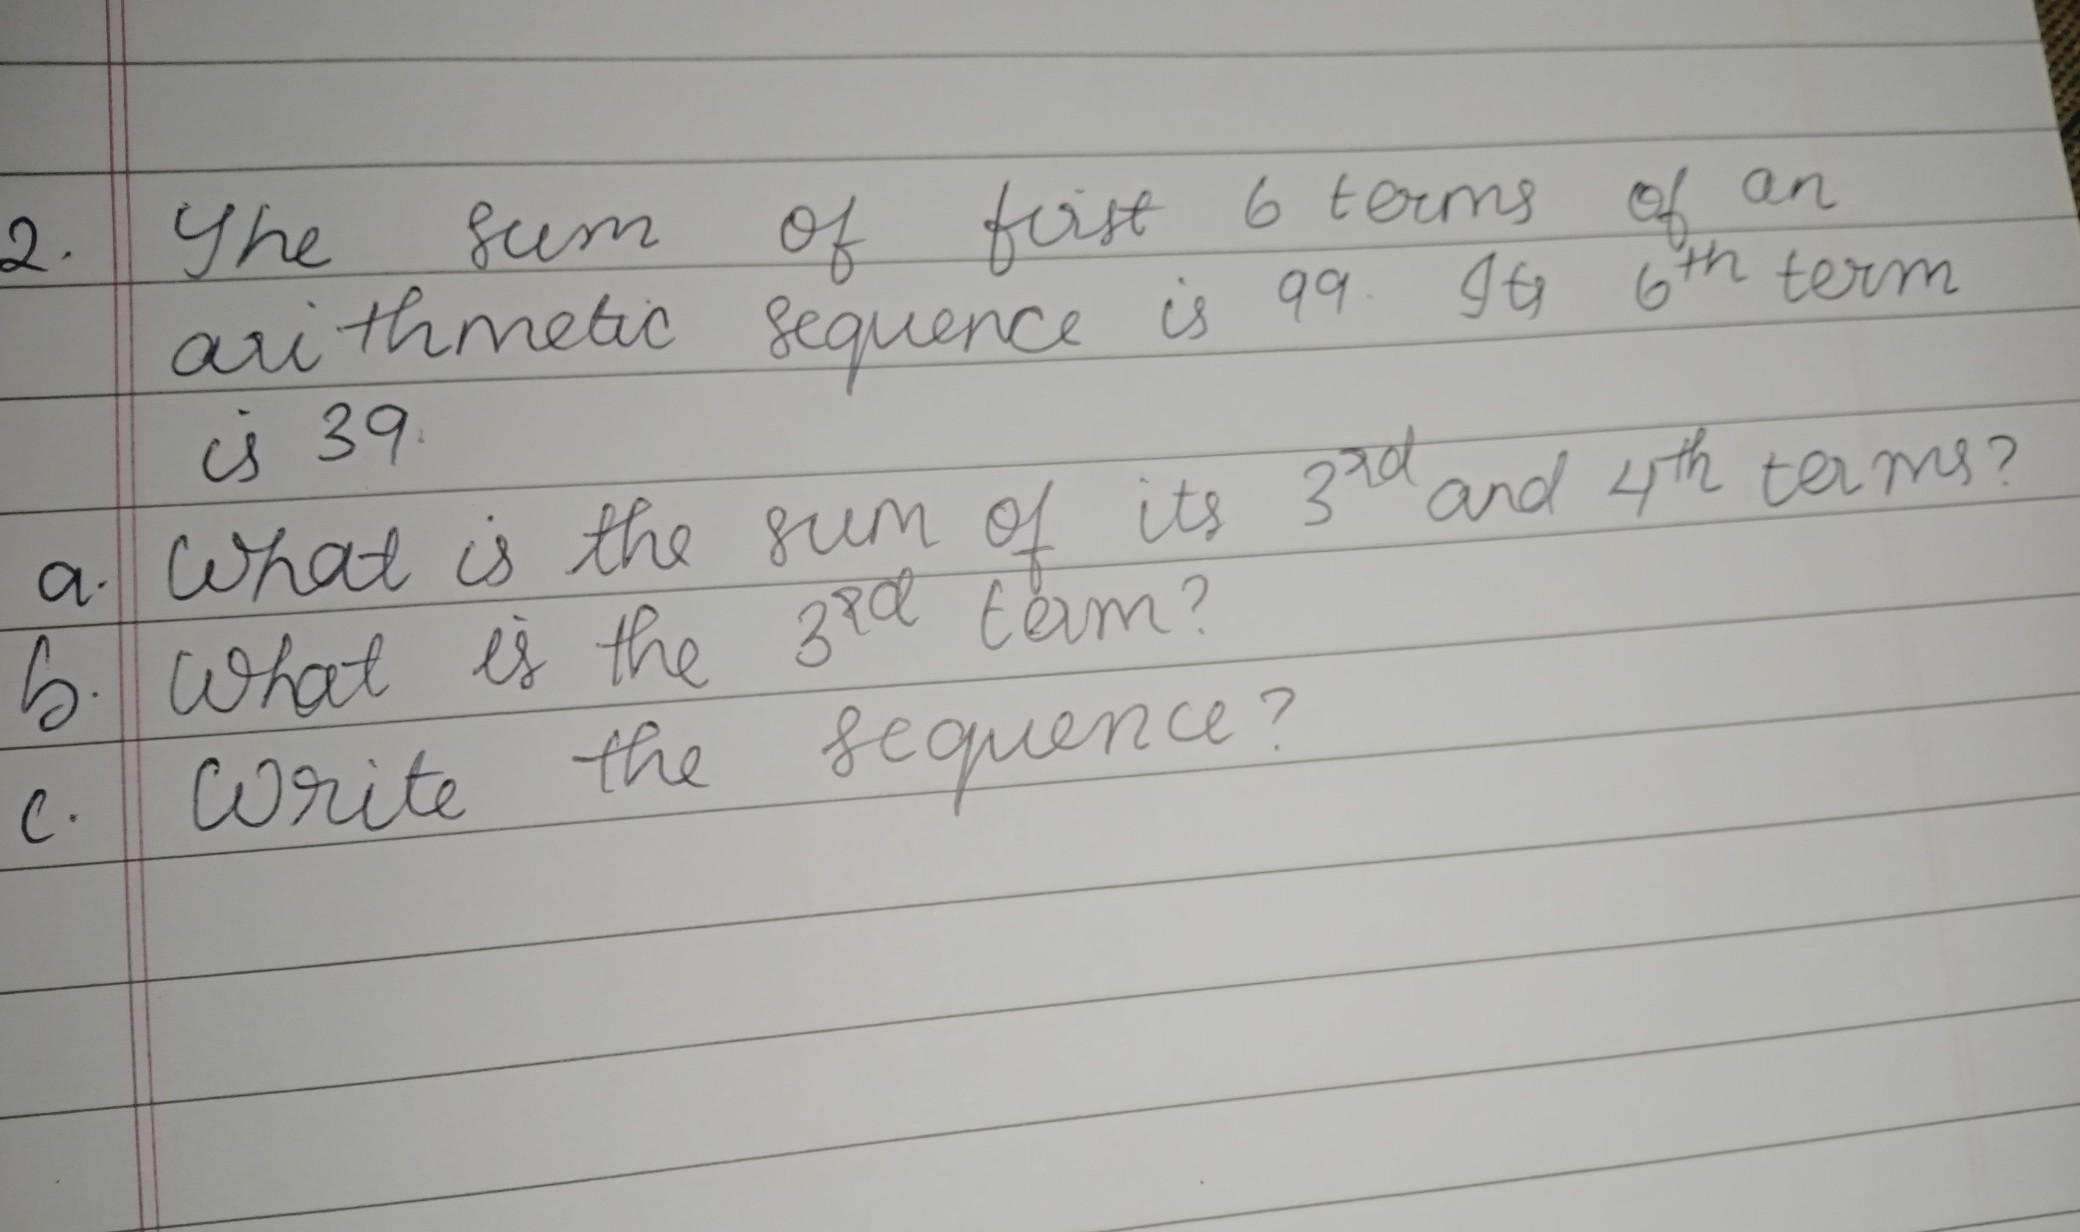 2. The sum of first 6 terms of an
arithmetic sequence is 99. Its 6th term
is 39.
a. What is the sum of its 3rd and 4th terms?
b. What is the 3rd term?
c. Write the sequence?